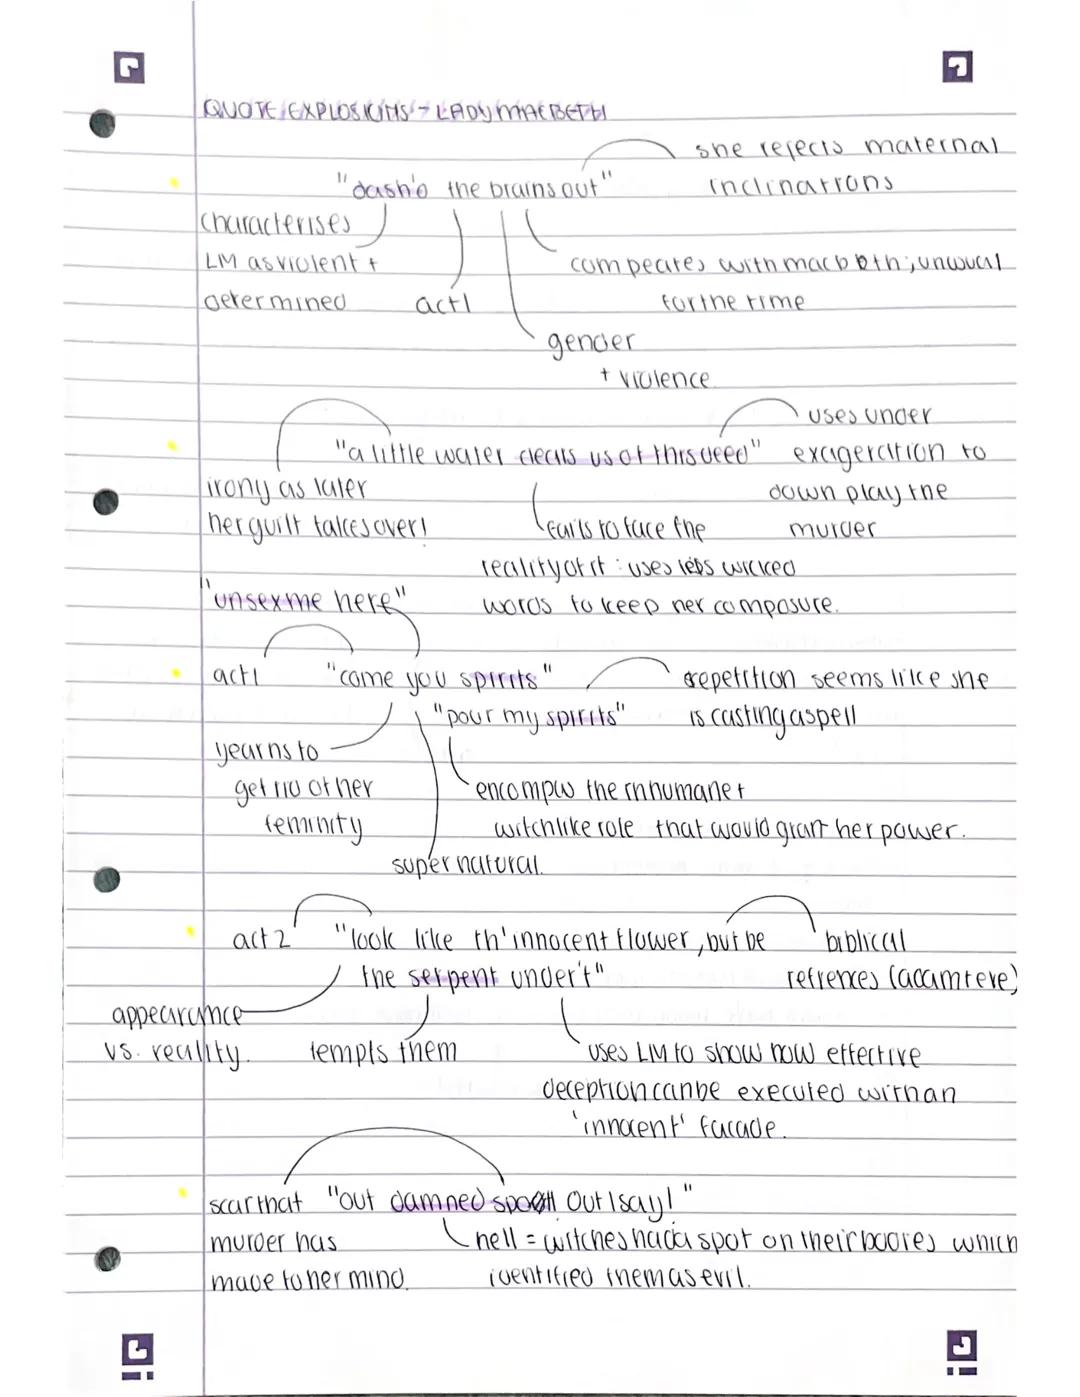 QUOTE EXPLOSIONS - LADY MACBETH
she rejects maternal
inclinations
"dash'd the brains out"
characterises
LM as violent +
determined
act 1
competes with macbeth; unusual
for the time
gender
+ violence
uses under
exageration to
down play the
murder
"a little water clears us of this deed"
irony as later
her guilt takes over!
fails to face the
reality of it : uses less wicked
words to keep her composure.
"unsex me here"
act 1
"come you spirits"
"pour my spirits"
repetition seems like she
is casting a spell
yearns to
get rid of her
feminity
the inhumane +
witchlike role that would grant her power.
supernatural.
act 2
"look like th' innocent flower, but be
the serpent under't"
biblical
refrences (adam + eve)
appearance
vs. reality.
tempts them
uses LM to show how effective
deception can be executed with an
'innocent' facade.
scar that
murder has
made to her mind.
"out damned spot out I say!"
hell = witches had a spot on their bodies which
identified them as evil.